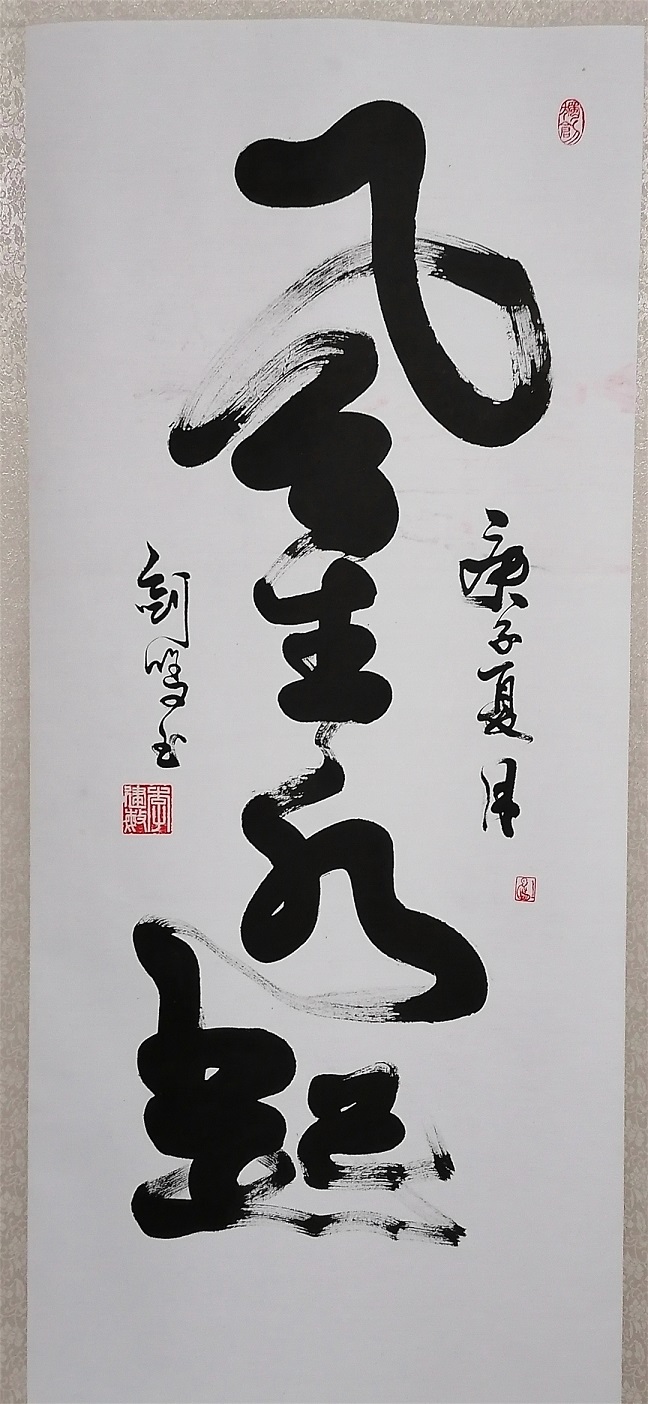 风生水起
庚子夏月
剑鸣书